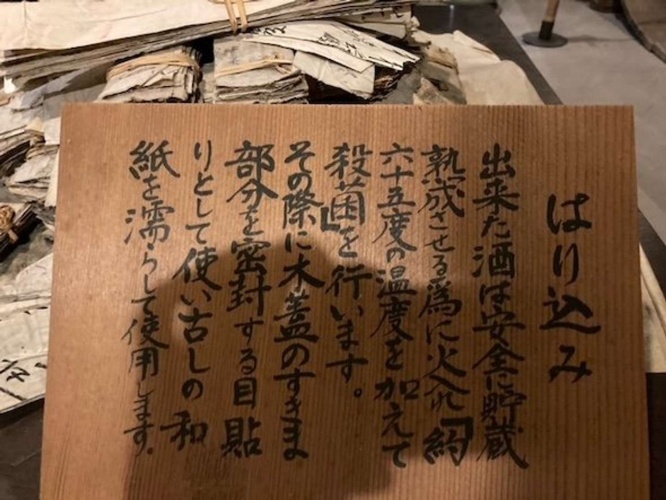 はり込み
出来た酒は安全に貯蔵
熟成させる為に火入れ「約
六十五度の温度を加えて
殺菌」を行います。
その際に木蓋のすきま
部分を密封する目貼
りとして使い古しの和
紙を濡らして使用します。